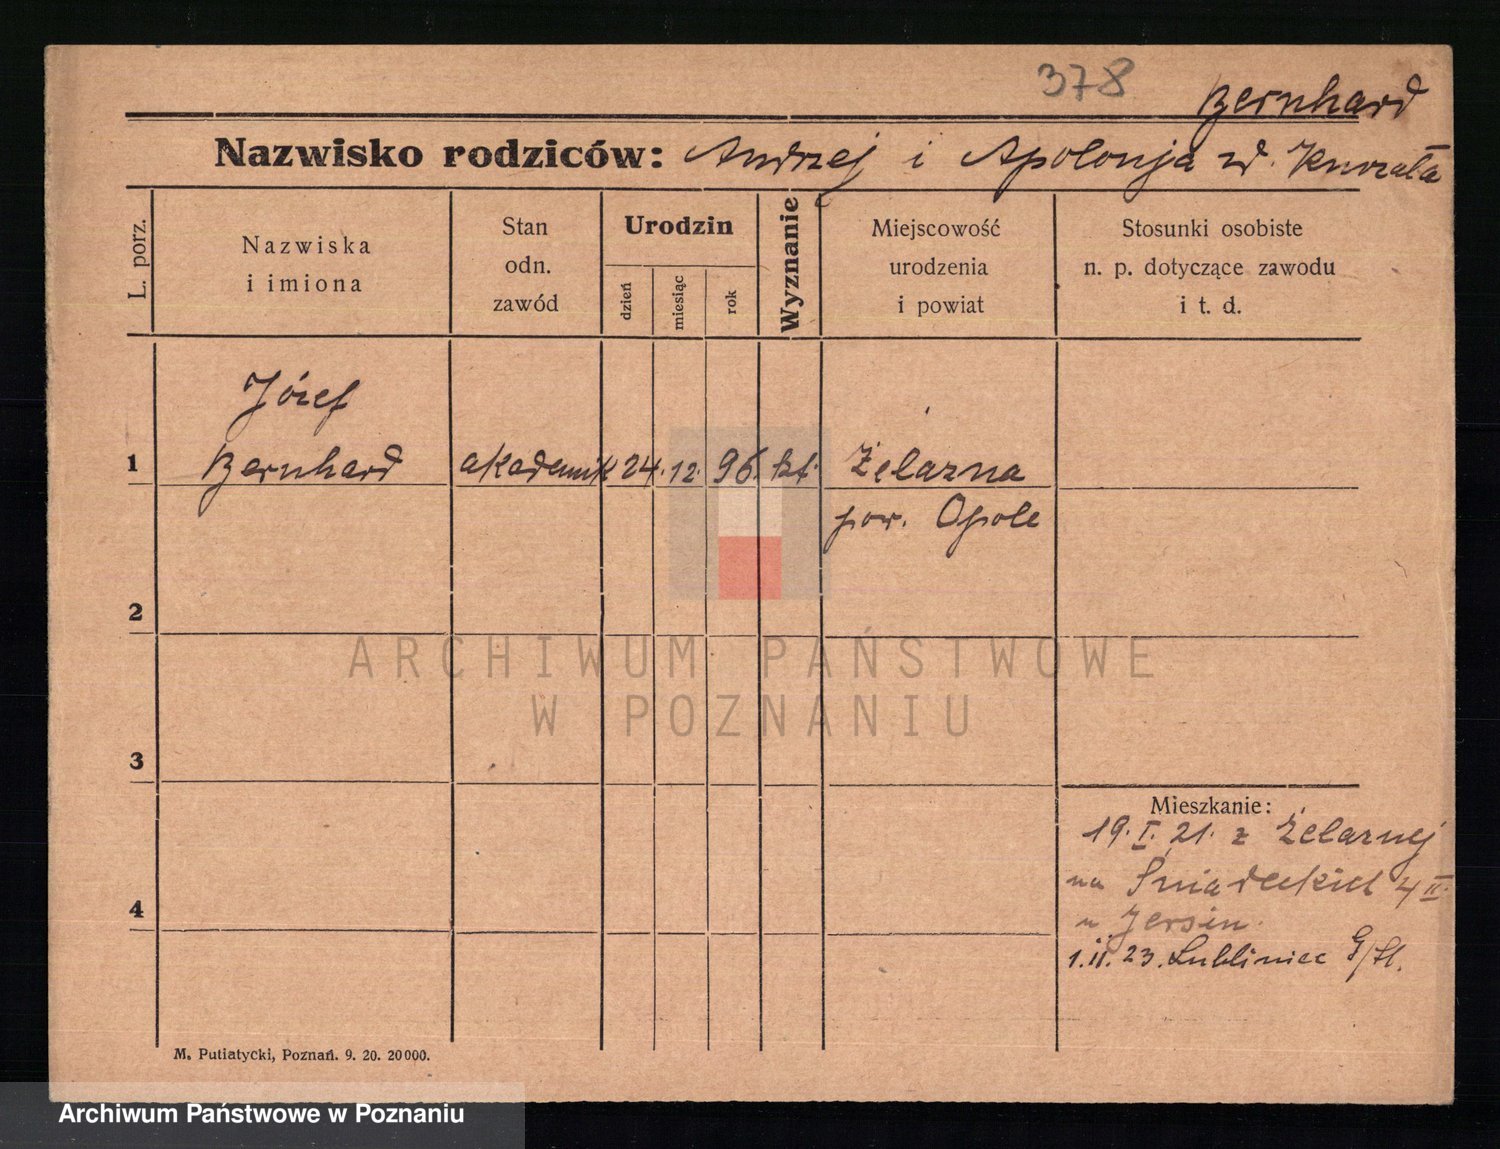 378
Bernhard
Nazwisko rodziców: Andrzej i Apolonja zd.
L. porz.
Nazwiska
i imiona
Stan
odn.
zawód
Urodzin
dzień
miesiąc
rok
Wyznanie
Miejscowość
urodzenia
i powiat
Stosunki osobiste
n. p. dotyczące zawodu
i t. d.
Józef
1 Bernhard akademik 24. 12. 96. kt. Żelazna
pow. Opole
2
3
4
Mieszkanie:
19. I. 21. z Żelaznej
na Śniadeckich 4 II.
u Jersin
1. II. 23. Lubliniec G/Śl.
M. Putiatycki, Poznań. 9. 20. 20000.
ARCHIWUM PAŃSTWOWE
W POZNANIU
Archiwum Państwowe w Poznaniu